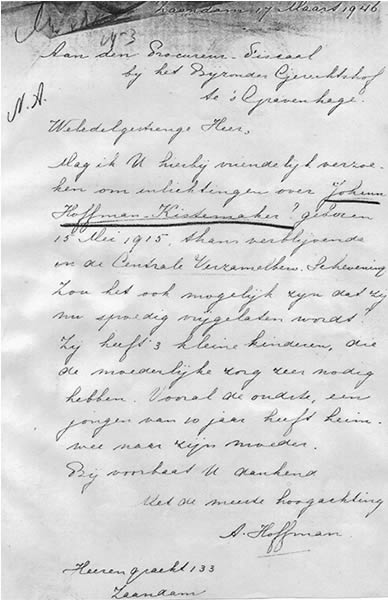 Zaandam 17 Maart 1946
Aan den Procureur-Fiscaal
bij het Byzonder Gerechtshof
te 's Gravenhage.
N.A.
Weledelgestrenge Heer,
Mag ik U hierbij vriendelijk verzoe-
ken om inlichtingen over Johanna
Hoffman-Kistemaker? geboren
15 Mei 1915, thans verblijvende
in de Centrale Verzamelbew. Schevening
Zou het ook mogelijk zijn dat zij
nu spoedig vrijgelaten wordt
Zij heeft 3 kleine kinderen, die
de moederlijke zorg zeer nodig
hebben. Vooral de oudste, een
jongen van 10 jaar heeft heim-
wee naar zijn moeder.
Bij voorbaat U dankend
Met de meeste hoogachting
A. Hoffman.
Heerengracht 133
Zaandam